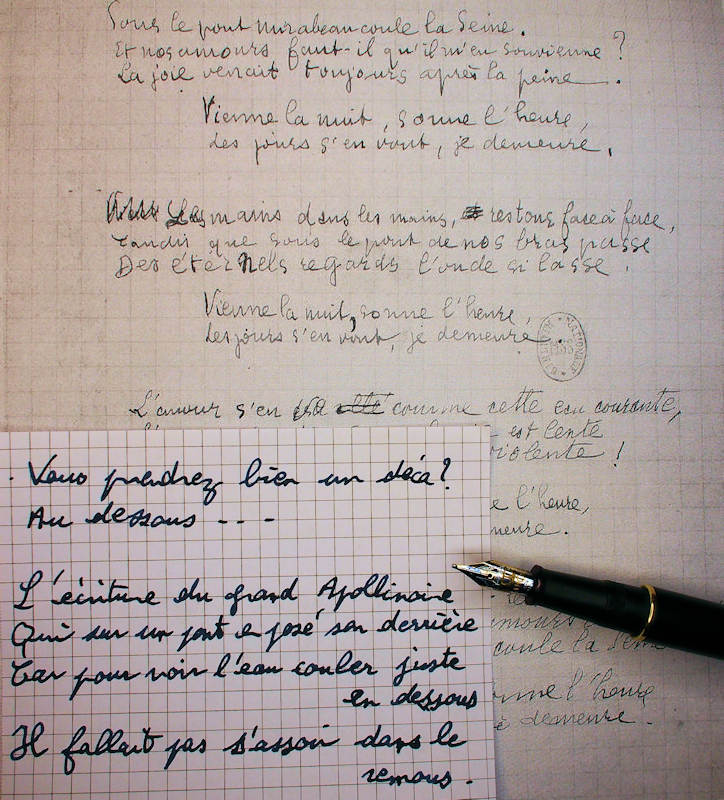 Sous le pont mirabeau coule la Seine.
Et nos amours faut-il qu'il m'en souvienne ?
La joie venait toujours après la peine.
Vienne la nuit, sonne l'heure,
Les jours s'en vont, je demeure.
Les mains dans les mains, restons face à face,
Tandis que sous le pont de nos bras passe
Des eternels regards l'onde si lasse.
Vienne la nuit, sonne l'heure,
Les jours s'en vont, je demeure
L'amour s'en va comme cette eau courante,
est lente
violente !
e l'heure,
meure.
Vous prendrez bien un déca?
Au dessous ----
L'écriture du grand Apollinaire
Qui sur un pont a posé son derrière
Car pour voir l'eau couler juste
en dessous
Il fallait pas s'assoir dans le
remous.
mours
coule la Seine
onne l'heure
demeure.